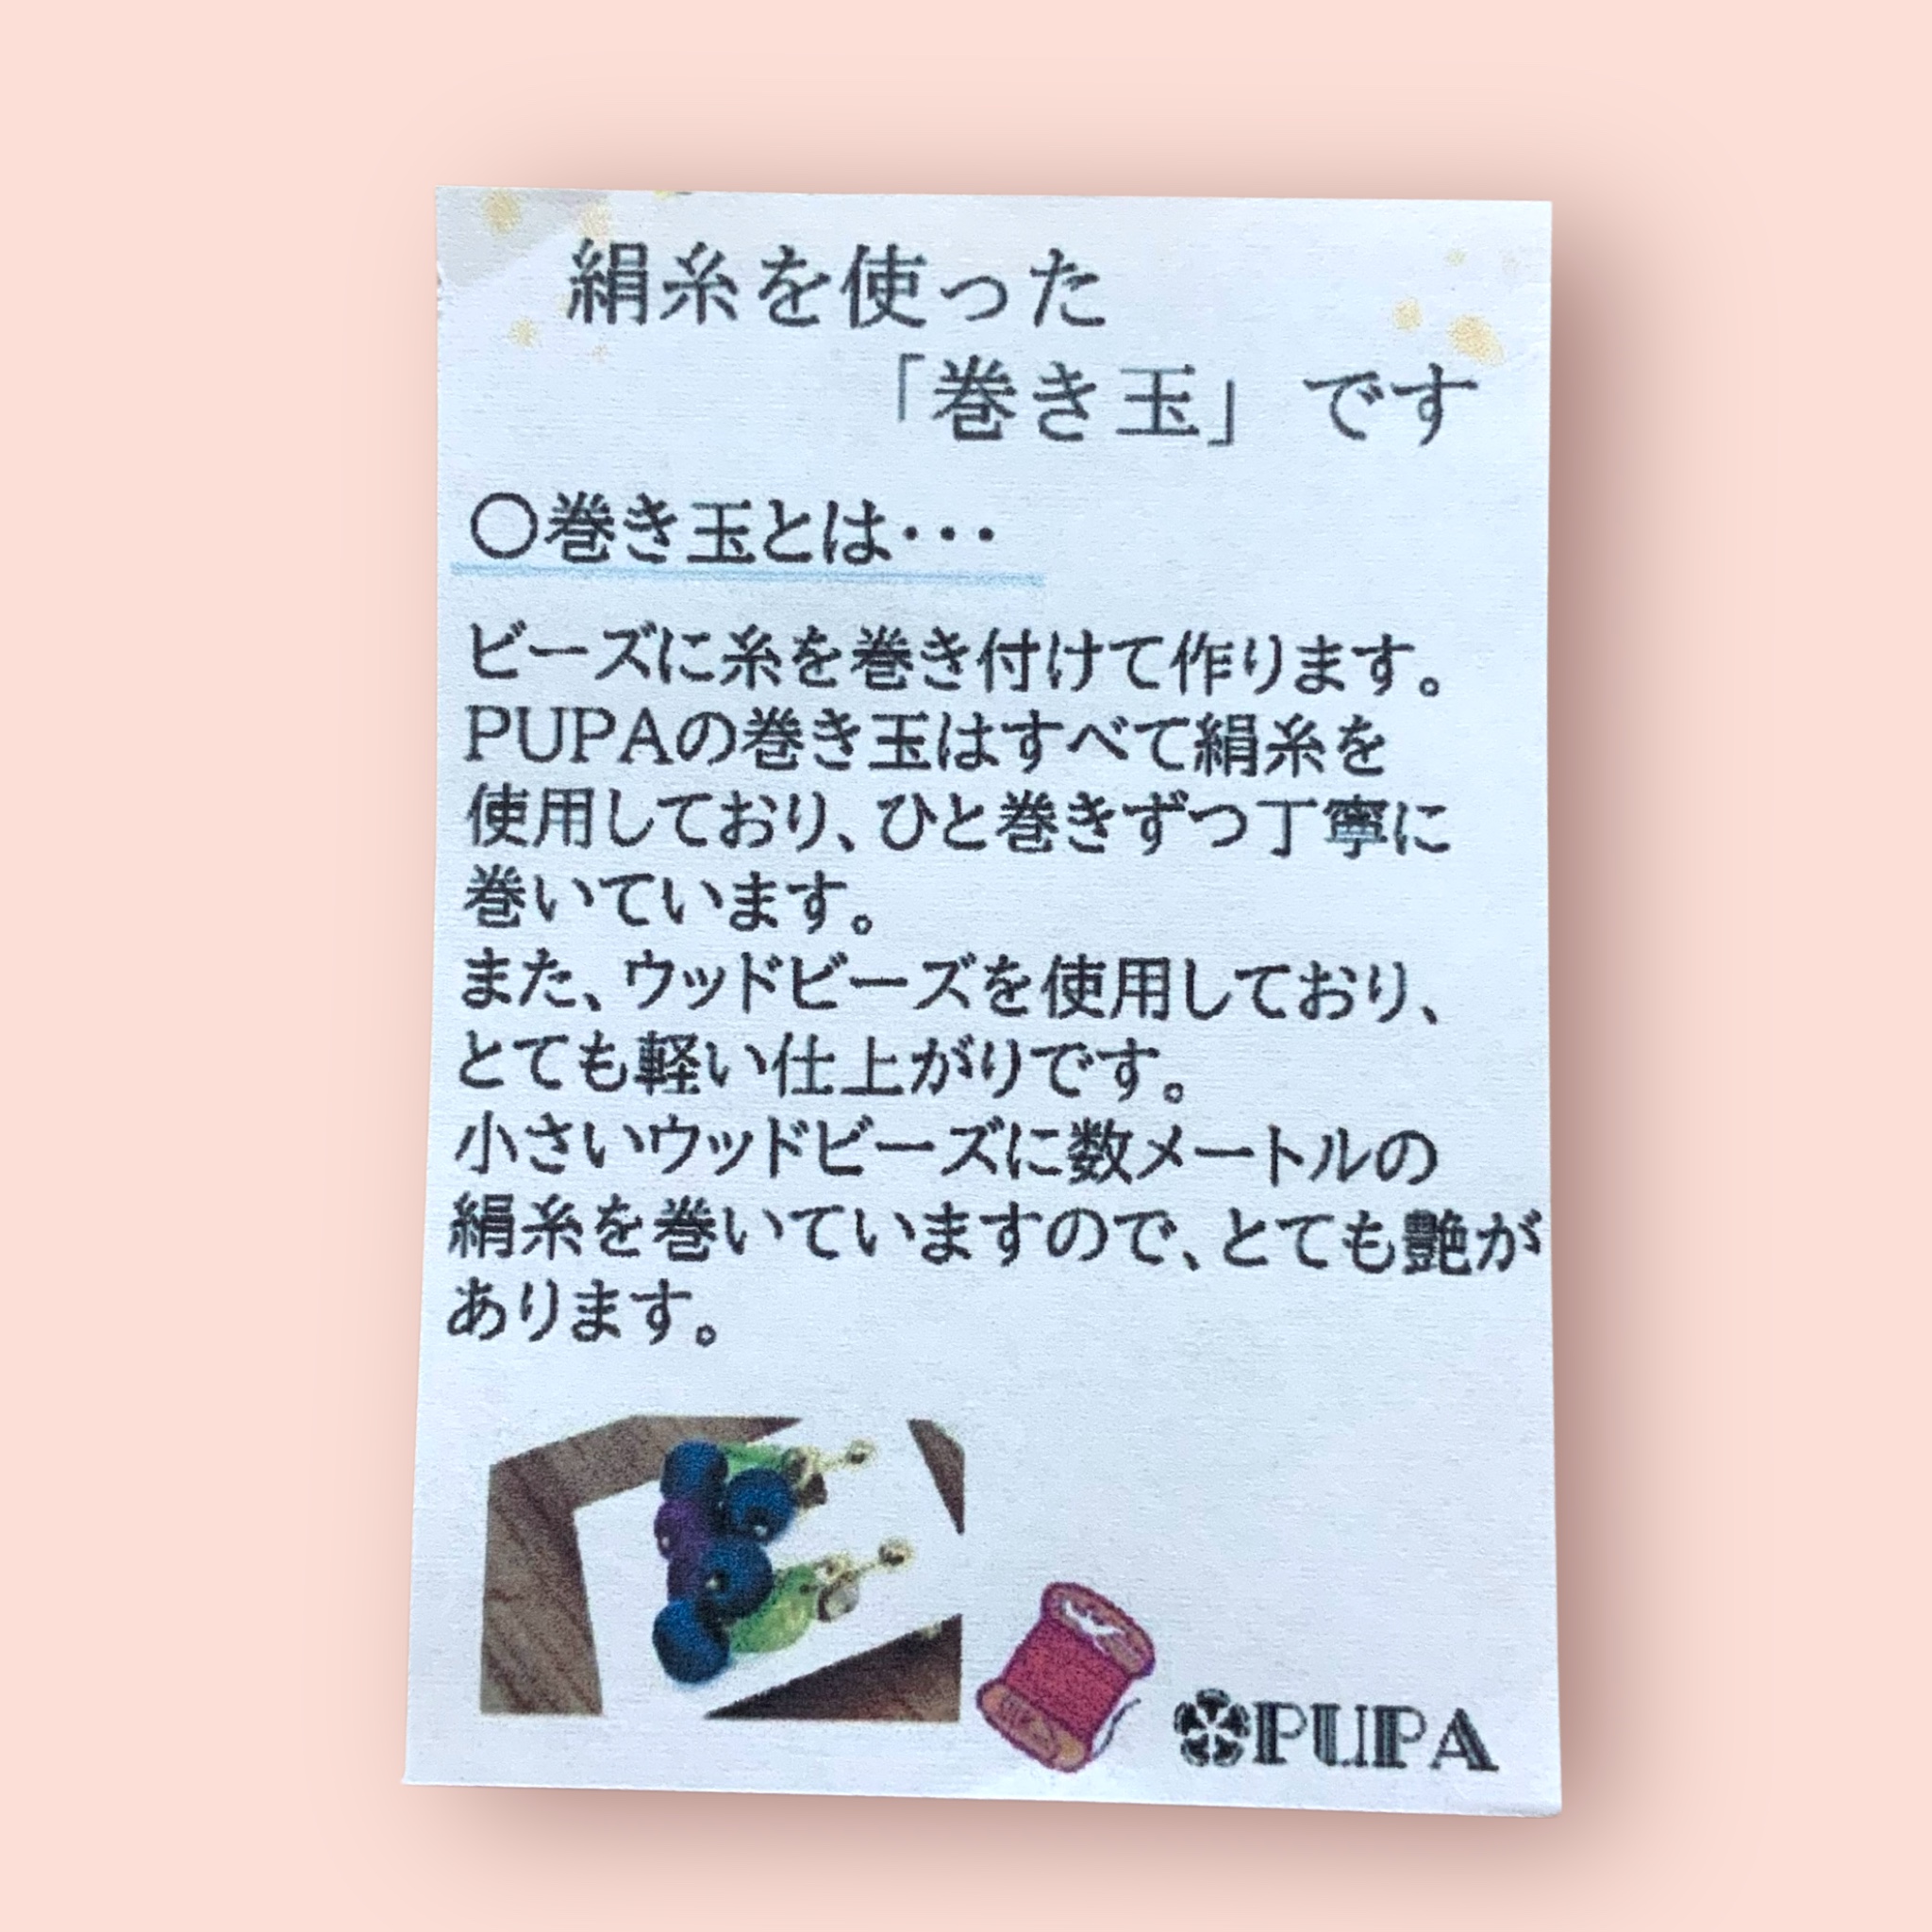 絹糸を使った
「巻き玉」です
〇巻き玉とは･･･
ビーズに糸を巻き付けて作ります。
PUPAの巻き玉はすべて絹糸を
使用しており、ひと巻きずつ丁寧に
巻いています。
また、ウッドビーズを使用しており、
とても軽い仕上がりです。
小さいウッドビーズに数メートルの
絹糸を巻いていますので、とても艶が
あります。
PUPA